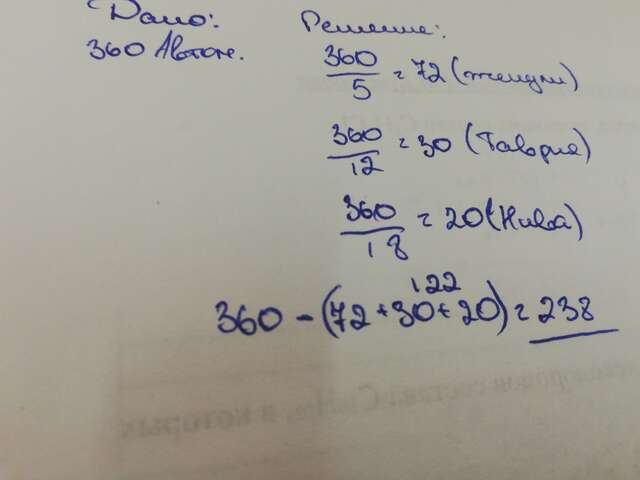 Дано:
Решение:
360 Автом.
360/5 = 72 (жигули)
360/12 = 30 (Таврия)
360/18 = 20 (Нива)
122
360 - (72 + 30 + 20) = 238
состава CnHn, в которых